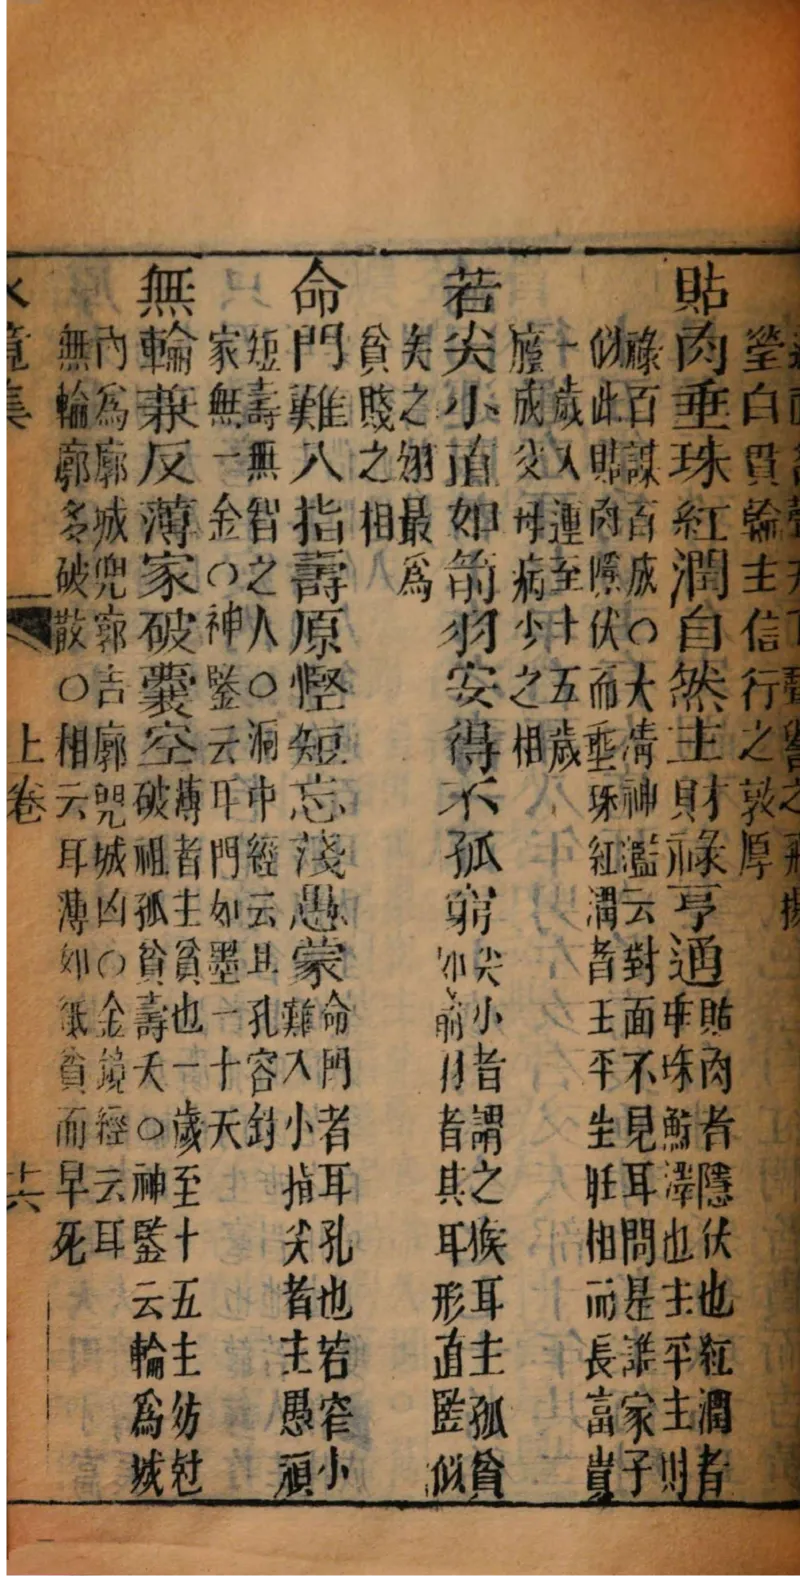 瑩白貫輪主信行之敦厚
貼肉垂珠紅潤自然主財祿亨通
貼肉者隱伏也紅潤者
垂珠鮮澤也主平主則
祿百謀百成〇大清神濫云對面不見耳問是誰家子
似此貼肉隱伏而垂珠紅潤者主平生旺相而長富貴
一十歲入運至十五歲
應成父母病少之相
若尖小直如箭羽安得不孤窮
尖小者謂之猴耳主孤貧
如箭羽者其耳形直豎似
矢之翎最爲
貧賤之相
命門難入指壽原慳短忘淺愚蒙
命門者耳孔也若窄小
難入小指尖者主愚頑
短壽無智之人〇洞中經云耳孔容針
家無一金〇神鑒云耳門如墨一十夭
無輪兼反薄家破囊空
薄者主貧也一歲至十五主妨尅
破祖孤貧壽夭〇神監云輪爲城
內爲廓城兜郭吉廓兜城凶〇金鏡經云耳
無輪廓多破散〇相云耳薄如紙貧而早死
水鏡集
上卷
十六